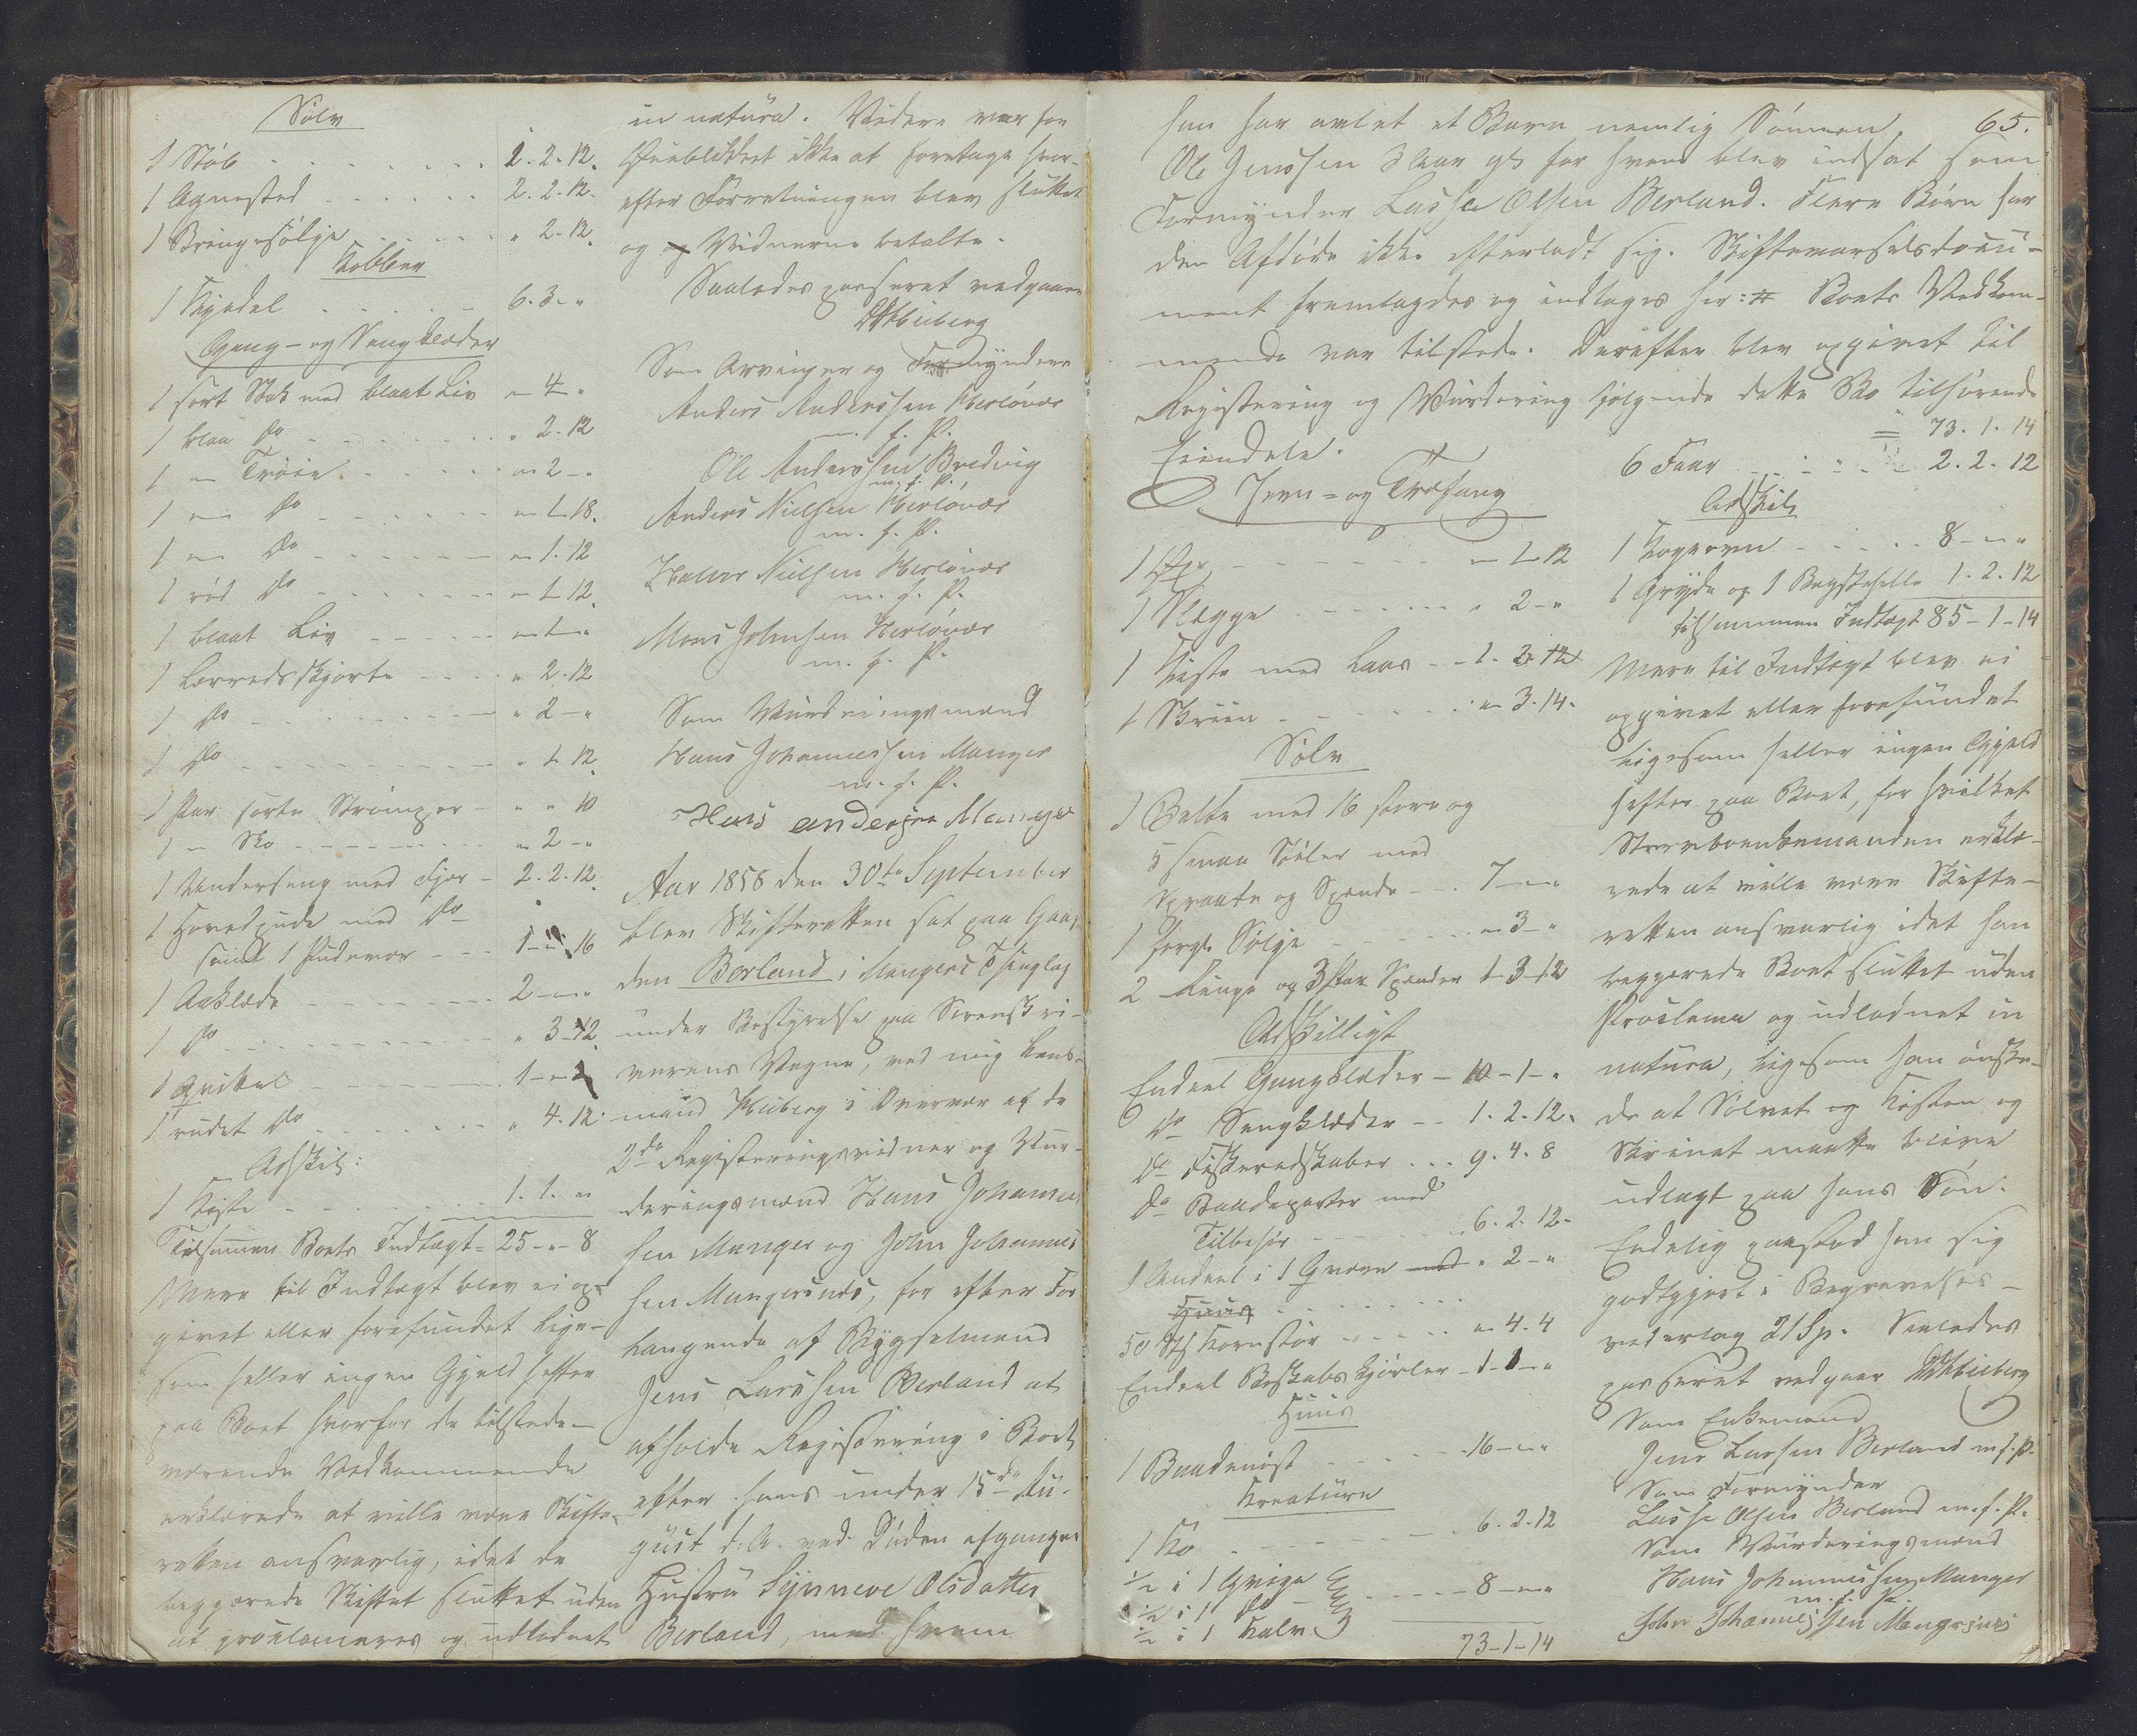 Sølv
1 Støb - - - - - 2. 2. 12.
1 Agnested - - - - - 2. 2. 12.
1 Bringesølje - - - - " 2. 12.
Kobber
1 Kjedel - - - - 6. 3. "
Gang- og Sengklæder
1 sort Stak med blaat Liv " 4 "
1 blaa Do - - - - " 2. 12
1 — Trøie - - - - " 2 - "
1 — Do - - - - " 1. 18.
1 — Do - - - - " 1. 12
1 rød Do - - - - " 1. 12.
1 blaat Liv - - - - " 1 - "
1 Lærredsskjorte - - - " 2. 12
1 Do - - - - " 2 - "
1 Do - - - - " 1. 12.
1 Par sorte Strømper - " " 10
1 — Sko - - - - " 2 - "
1 Underseng med Fjær - 2. 2. 12.
1 Hovedpude med Do
samt 1 Pudevor - - - 1 - " 16
1 Aaklæde - - - - 2 - " "
1 Do - - - - " 3 - 12
1 - - - - 1 - "
1 rudet Do - - - - " 4. 12.
Adskil:
1 Kiste - - - - 1. 1. "
Tilsammen Boets Indtægt = 25 - " - 8
Mere til Indtægt blev ei op-
givet eller forefundet lige-
som heller ingen Gjeld hefter
paa Boet hvorfor de tilstede-
værende Vedkommende
erklærede at ville være Skifte-
retten ansvarlig, idet de
begjærede Skiftet sluttet uden
at proclameres og udlodnet
in natura. Videre var for
Øieblikket ikke at foretage hvor-
efter Forretningen blev sluttet
og Vidnerne betalte.
Saaledes passeret vedgaaer
Som Arvinger og Formyndere
Anders Anderssen Herløvær
m. f. P.
Ole Anderssen Breding
m. f. P.
Anders Nielsen Herløvær
m. f. P.
Halvor Nielsen Herløvær
m. f. P.
Mons Johnsen Herløvær
m. f. P.
Som Vurderingsmænd
Hans Johannessen Manger
m. f. P.
Hans andersen Manger
Aar 1858 den 30te September
blev Skifteretten sat paa Gaar-
den Berland i Mangers Thinglag
under Bestyrelse paa Sorenskri-
verens Vegne, ved mig Lens-
mand i Overvær af de
2de Registeringsvidner og Vur-
deringsmænd Hans Johannes-
sen Manger og John Johannes-
sen Mangersnæs, for efter For-
langende af Bygselmand
Jens Larssen Berland at
afholde Registering i Boet
efter hans under 15de Au-
gust d. A. ved Døden afgangne
Hustru Synneve Olsdatter
Berland, med hvem
65.
han har avlet et Barn nemlig Sønnen
Ole Jenssen Aar gl. for hvem blev indsat som
Formynder Lasse Olsen Berland. Flere Børn har
den Afdøde ikke efterladt sig. Skiftevarselsdocu-
ment fremlagdes og indtages her: # Boets Vedkom-
mende var tilstede. Derefter blev opgivet til
Registering og Vurdering følgende dette Bo tilhørende
Eiendele.
Jern- og Træfang
1 Øxe - - - - " 1 - 12
1 Slegge - - - - " 2 - "
1 Kiste med Laas - - 1. 2. 12
1 Skriin - - - - " 3. 14.
Sølv
1 Belte med 16 store og
5 smaa Støler med
og Spende - - 7 - " "
1 forgt. Sølje - - - - " 3 - "
2 Ringe og 3 Par Spænder 1 - 3 - 12
Adskilligt
Endeel Gangklæder - 10 - 1 - "
Do Sengklæder - - 1. 2. 12.
Do Fiskeredskaber . . . 9. 4. 8
Do Baadeparter med
Tilbehør - - - - 6. 2. 12.
1 Andeel i 1 Qværn med " 2 - "
Huus - - - -
50 Kornstør - - - - " 4. 4
Endeel Boskabskjørler - 1 - 1 - "
Huus
1 Baadenøst - - - 16 - " "
Kreature
1 Ko - - - - 6. 2. 12
1/2 i 1 Qvige
1/2 i 1 Do - - - - 8 - " "
1/2 i 1 Kalv
73 - 1 - 14
= 73. 1. 14
6 Faar - - - - 2. 2. 12
Adskil:
1 Kogeovn - - - - 8 - " "
1 Gryde og 1 Bagstehelle 1. 2. 12
Tilsammen Indtægt 85 - 1 - 14
Mere til Indtægt blev ei
opgivet eller forefundet
ligesom heller ingen Gjeld
hefter paa Boet, for hvilket
Stervboenkemanden erklæ-
rede at ville være Skifte-
retten ansvarlig idet han
begjærede Boet sluttet uden
Proclama og udlodnet in
natura, ligesom han ønske-
de at Sølvet og Kisten og
Skrinet maatte blive
udlagt paa hans Søn.
Endelig paastod han sig
godtgjort i Begravelses-
vederlag 21 Sp. Saaledes
passeret vedgaaer
Som Enkemand
Jens Larssen Berland m. f. P.
Som Formynder
Lasse Olsen Berland m. f. P.
Som Vurderingsmænd
Hans Johannessen Manger
m. f. P.
John Johannessen Mangersnes